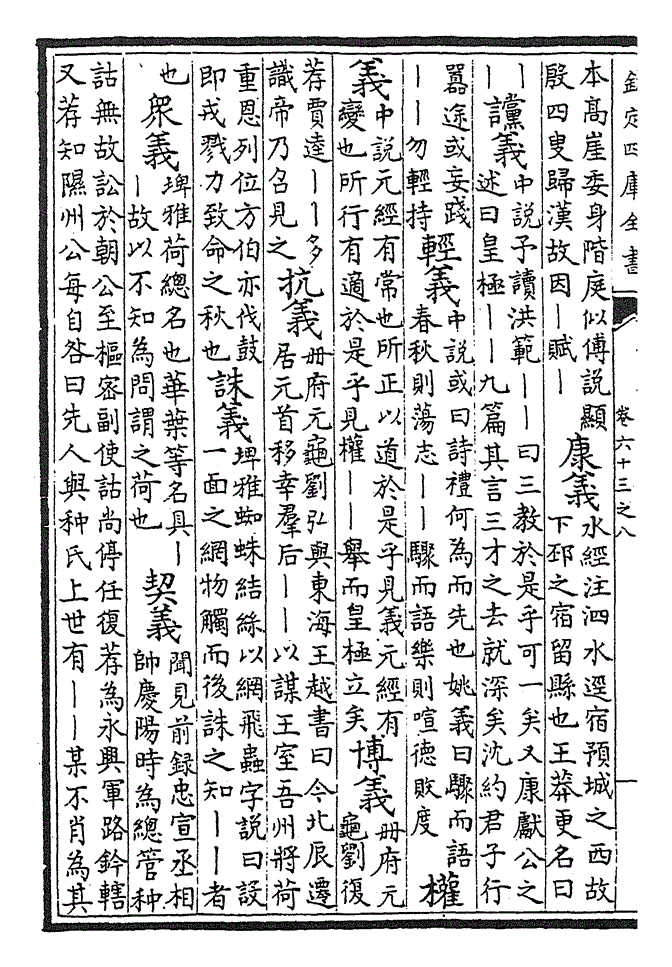 欽定四庫全書
卷六十三之八
本髙崖委身階庭似傅説顯
殷四叟歸漢故因丨賦丨
康義
水經注泗水逕宿預城之西故
下邳之宿留縣也王莽更名曰
丨
丨
讜義
中説予讀洪範丨丨曰三教於是乎可一矣又康獻公之
述曰皇極丨丨九篇其言三才之去就深矣沈約君子行
囂途或妄踐
丨丨勿輕持
輕義
中説或曰詩禮何為而先也姚義曰驟而語
春秋則蕩志丨丨驟而語樂則喧德敗度
權
義
中説元經有常也所正以道於是乎見義元經有
變也所行有適於是乎見權丨丨舉而皇極立矣
博義
册府元
龜劉復
荐賈逵丨丨多
識帝乃召見之
抗義
册府元龜劉弘與東海王越書曰今北辰遷
居元首移幸羣后丨丨以謀王室吾州將荷
重恩列位方伯亦伐鼓
即戎戮力致命之秋也
誅義
埤雅蜘蛛結絲以網飛蟲字説曰設
一面之網物觸而後誅之知丨丨者
也
衆義
埤雅荷總名也華葉等名具丨
丨故以不知為問謂之荷也
契義
聞見前録忠宣丞相
帥慶陽時為總管种
詁無故訟於朝公至樞密副使詁尚停任復荐為永興軍路鈐轄
又荐知隰州公每自咎曰先人與种氏上世有丨丨某不肖為其